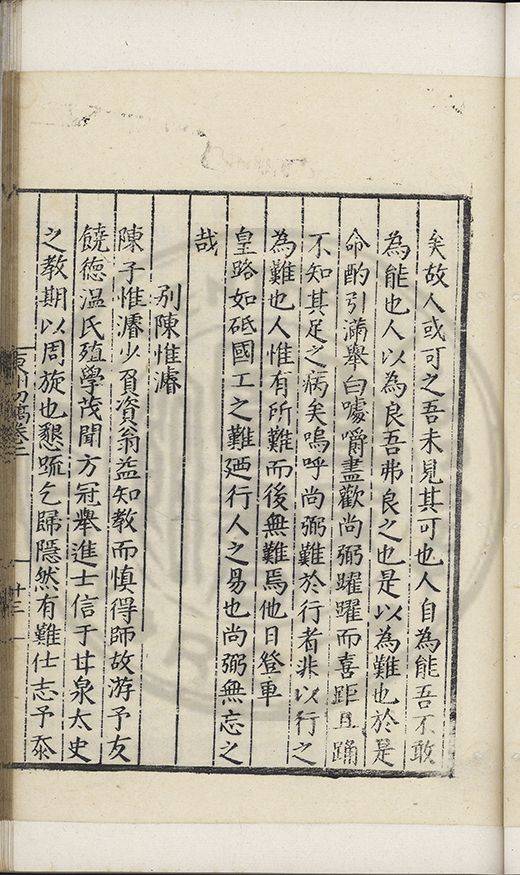 矣故人或可之吾未見其可也人自為能吾不敢
為能也人以為良吾弗良之也是以為難也於是
命酌引滿舉白噱嚼盡歡尚弼躍躍而喜距且踊
不知其足之病矣嗚呼尚弼難於行者非以行之
為難也人惟有所難而後無難焉他日登車
皇路如砥國工之難廼行人之易也尚弼無忘之
哉
別陳惟濬
陳子惟濬少負資翁益知教而慎得師故游予友
饒德温氏殖學茂聞方冠舉進士信于甘泉太史
之教期以周旋也懇疏乞歸隱然有難仕志予忝
東川初稿卷二
十三